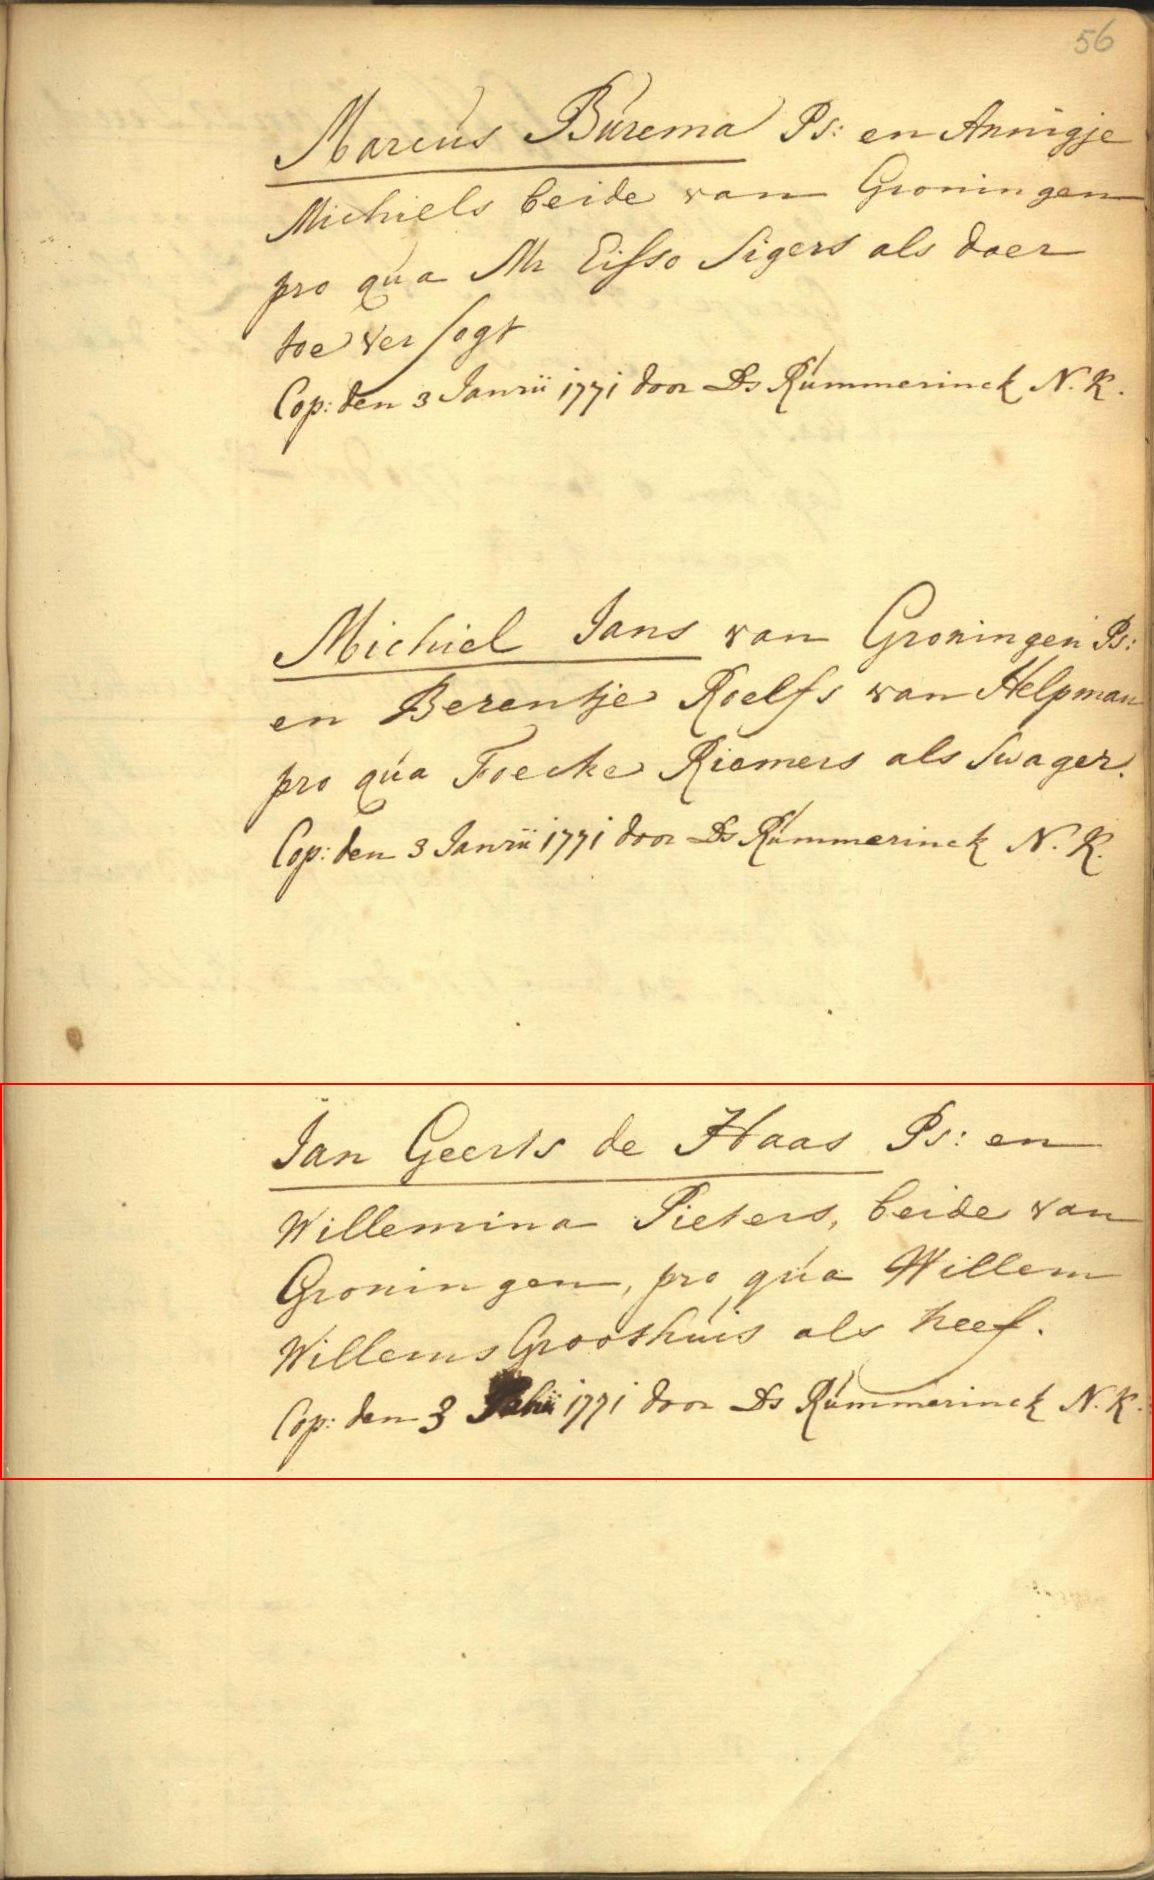 56
Marcus Burema Ps: en Annigje
Michiels beide van Groningen
pro qua Mr Eisso Sigers als daer
toe versogt
Cop: den 3 Janrii 1771 door Ds Rummerinck N. K.
Michiel Jans van Groningen Ps:
en Berentje Roelfs van Helpman
pro qua Foecke Riemers als Swager.
Cop: den 3 Janrii 1771 door Ds Rummerinck N. K.
Jan Geerts de Haas Ps: en
Willemina Pieters, beide van
Groningen, pro qua Willem
Willems Groothuis als neef.
Cop: den 3 1771 door Ds Rummerinck N. K.